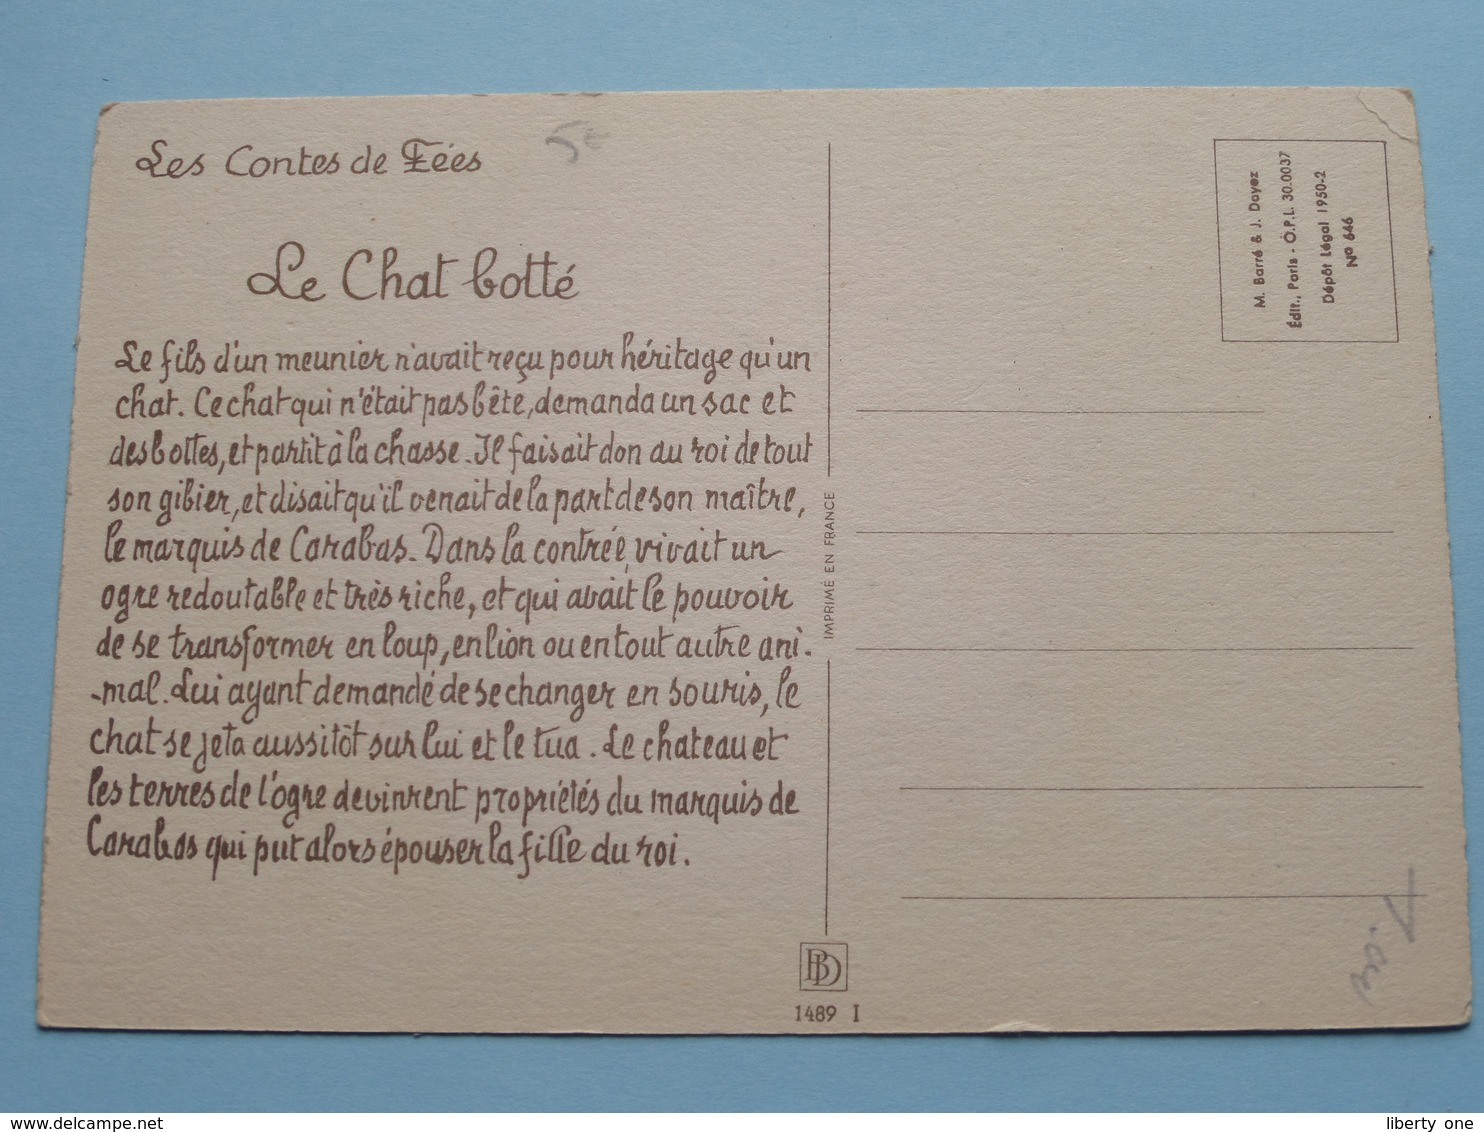 Les Contes de Fées
5€
Le Chat botté
Le fils d'un meunier n'avait reçu pour héritage qu'un
chat. Ce chat qui n'était pas bête, demanda un sac et
des bottes, et partit à la chasse. Il faisait don au roi de tout
son gibier, et disait qu'il venait de la part de son maître,
le marquis de Carabas. Dans la contrée, vivait un
ogre redoutable et très riche, et qui avait le pouvoir
de se transformer en loup, en lion ou en tout autre ani-
-mal. Lui ayant demandé de se changer en souris, le
chat se jeta aussitôt sur lui et le tua. Le chateau et
les terres de l'ogre devinrent propriétés du marquis de
Carabas qui put alors épouser la fille du roi.
IMPRIMÉ EN FRANCE
BD
1489 I
M. Barré & J. Dayez
Édit., Paris - O.P.L. 30.0037
Dépôt Légal 1950-2
No 646
delcampe.net
liberty one